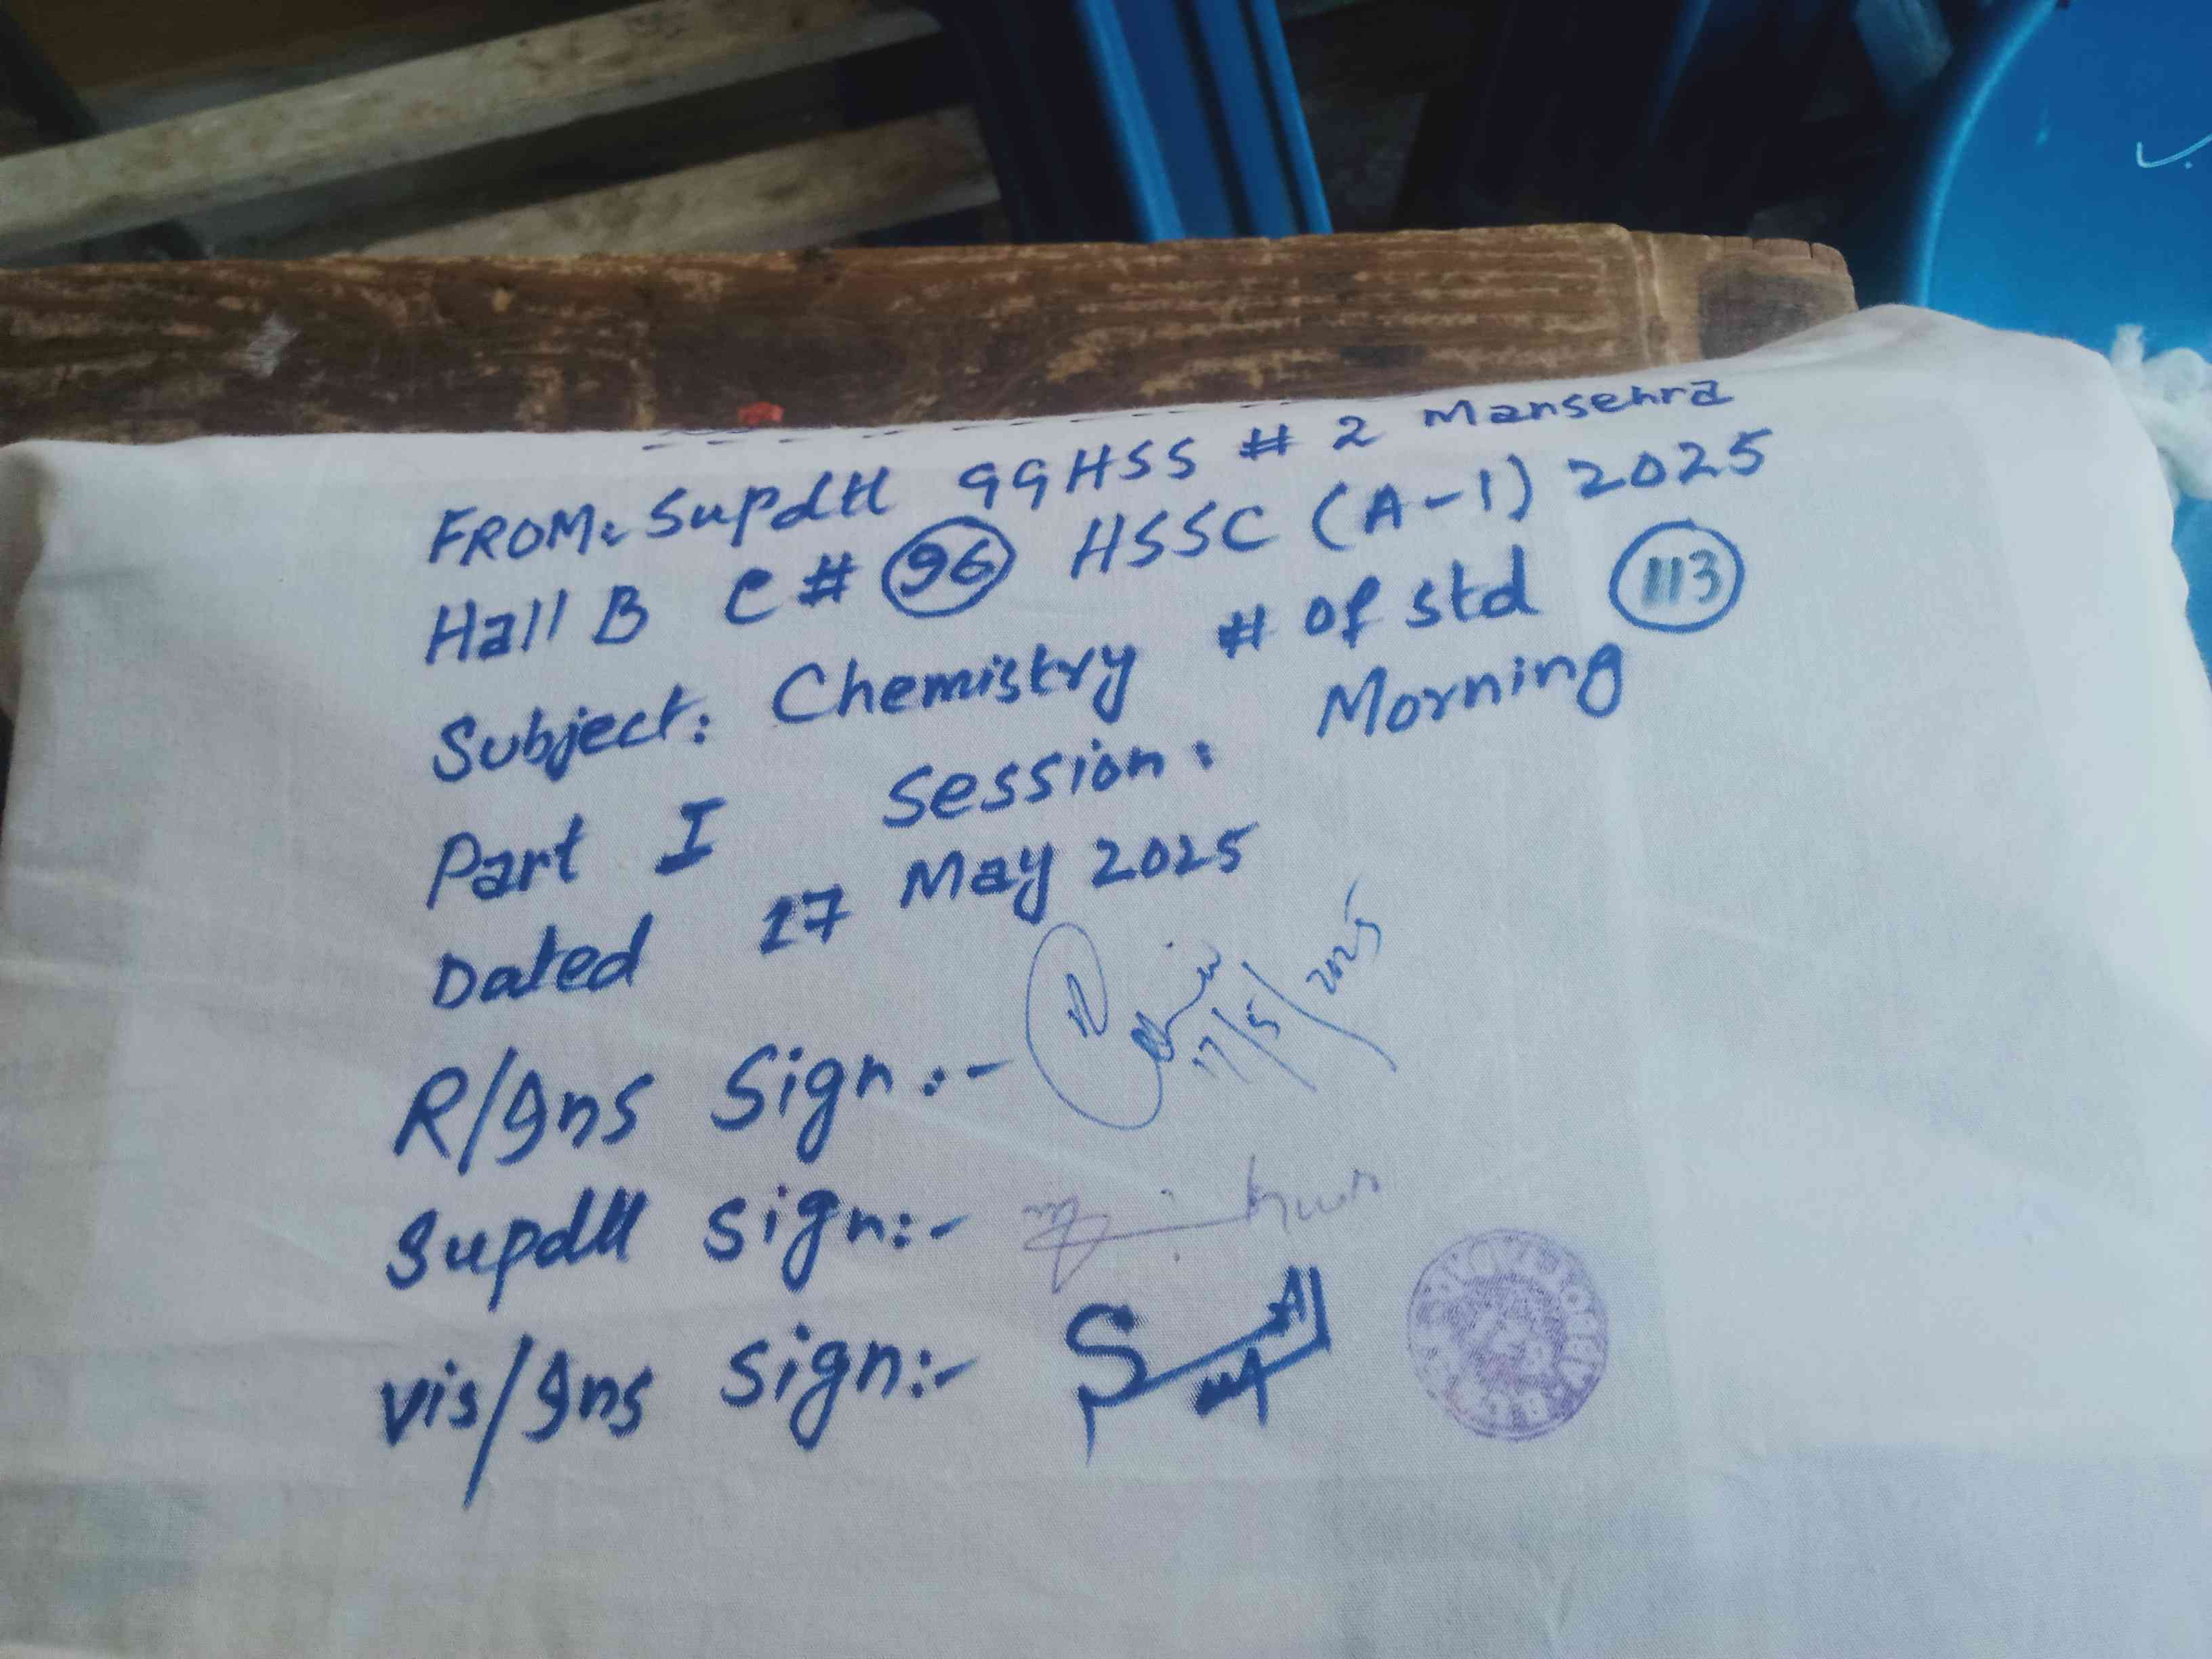 FROM: Supdtt GGHSS # 2 Mansehra
Hall B C # 96 HSSC (A-1) 2025
Subject: Chemistry # of std 113
Part I Session: Morning
Dated 17 May 2025
R/Ins Sign:-
17/5/2025
Supdtt Sign:-
Vis/Ins Sign:-